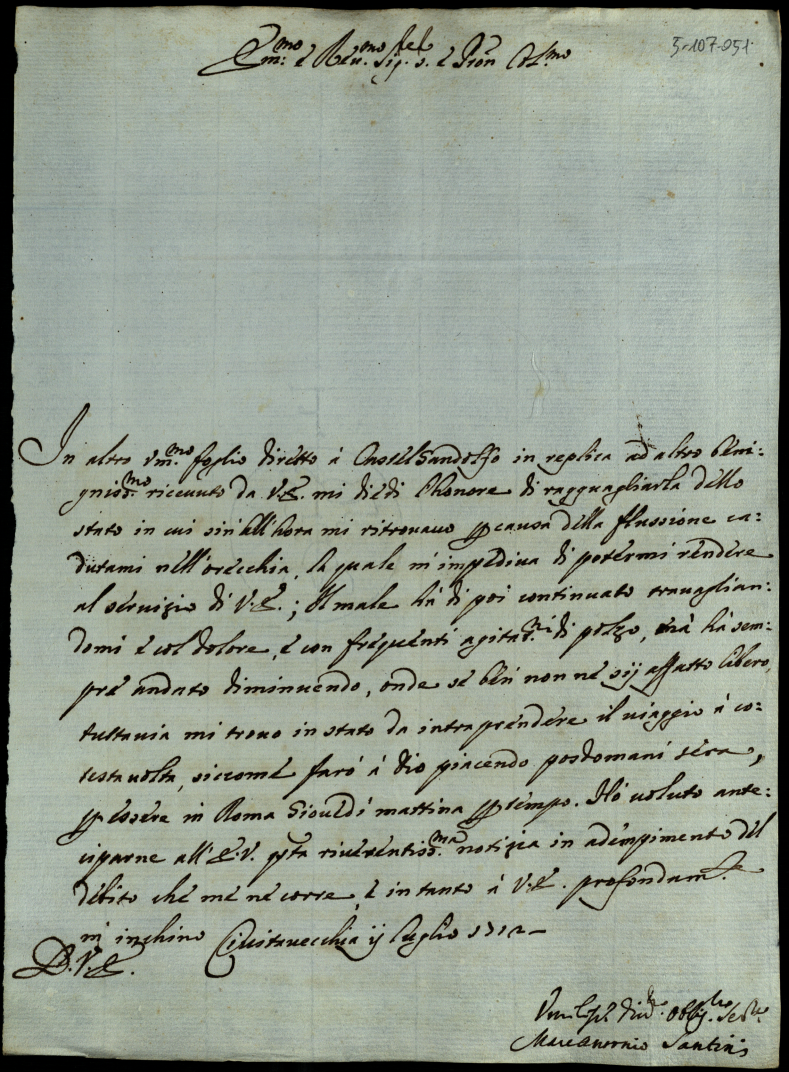 5-107-051
Em.mo e Rev.mo Sig. e Pron Col.mo
In altro um.mo foglio diretto à Castel Gandolfo in replica ad altro beni-
gniss.mo ricevuto da V.E. mi diedi l'honore di ragguagliarla dello
stato in cui sin'all'hora mi ritrovavo p causa della flussione ca-
dutami nell'orecchia, la quale m'impediva di potermi rendere
al servizio di V.E.; Il male hà di poi continuato travaglian-
domi e col dolore, e con frequenti agitaz.ni di polso, mà hà sem-
pre andato diminuendo, onde se ben non ne sij affatto libero,
tuttavia mi trovo in stato da intraprendere il viaggio à co-
testa volta, siccome farò à Dio piacendo posdomani sera,
p essere in Roma Giovedì mattina p tempo. Hò voluto ante-
ciparne all'E.V. q.ta riverentiss.ma notizia in adempimento del
debito che me ne corre, e intanto à V.E. profondam.te
m'inchino Civitavecchia ij luglio 1712
D.V.E.
Um.
Marcantonio Santini